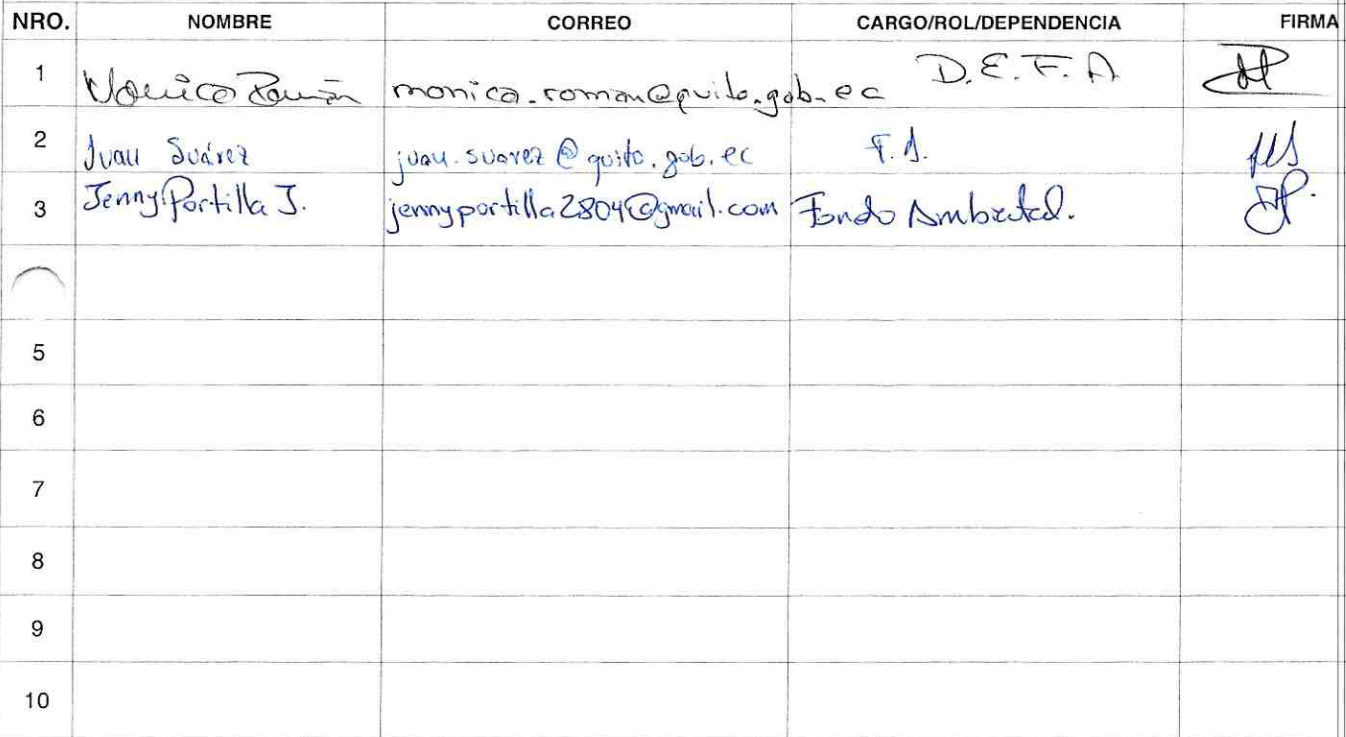 NRO. NOMBRE CORREO CARGO/ROL/DEPENDENCIA FIRMA
1 Monica Román monica.roman@quito.gob.ec D.E.F.A
2 Juan Suárez juan.suarez@quito.gob.ec F.A.
3 Jenny Portilla J. jennyportilla2804@gmail.com Fondo Ambiental.
5
6
7
8
9
10